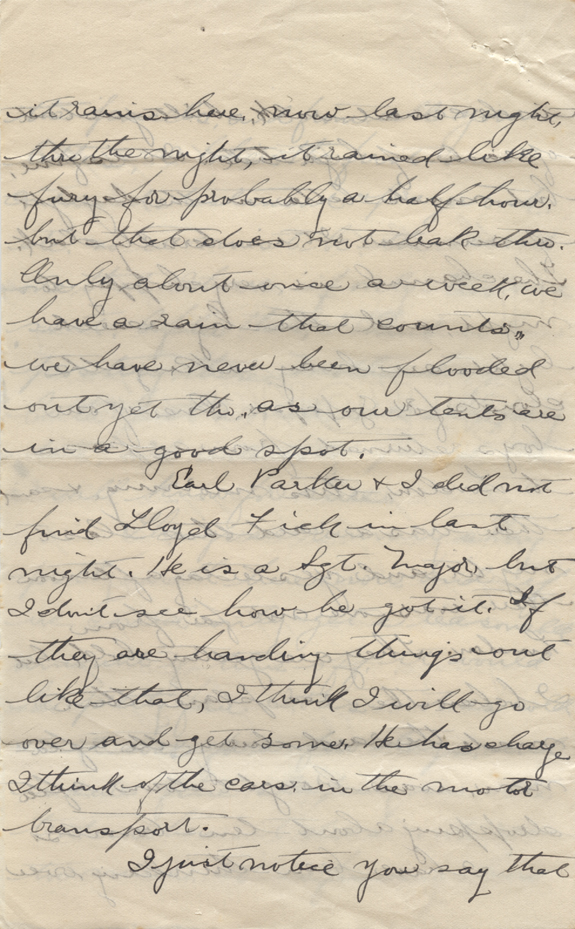 it rains here, now last night,
thru the night, it rained like
fury for probably a half hour.
but that does not leak thru.
Only about once a week, we
have a rain that counts.
we have never been flooded
out yet tho, as our tents are
in a good spot.
Earl Parker & I did not
find Lloyd Fick in last
night. He is a Sgt. Major but
I don't see how he got it. If
they are handing things out
like that, I think I will go
over and get some. He has charge
I think of the cars in the motor
transport.
I just notice you say that